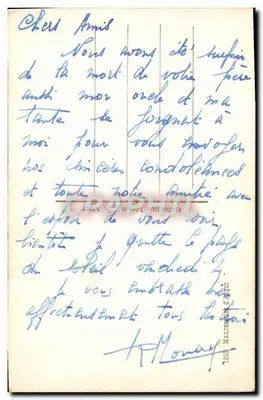 Chers Amis
Nous avons été surpris
de la mort de votre père
aussi mon oncle et ma
tante se joignent à
moi pour vous envoyer
nos sincères condoléances
et toute notre amitié avec
l'espoir de vous voir
bientôt je quitte le pays
du soleil vendredi 4
je vous embrasse bien
affectueusement tous les trois